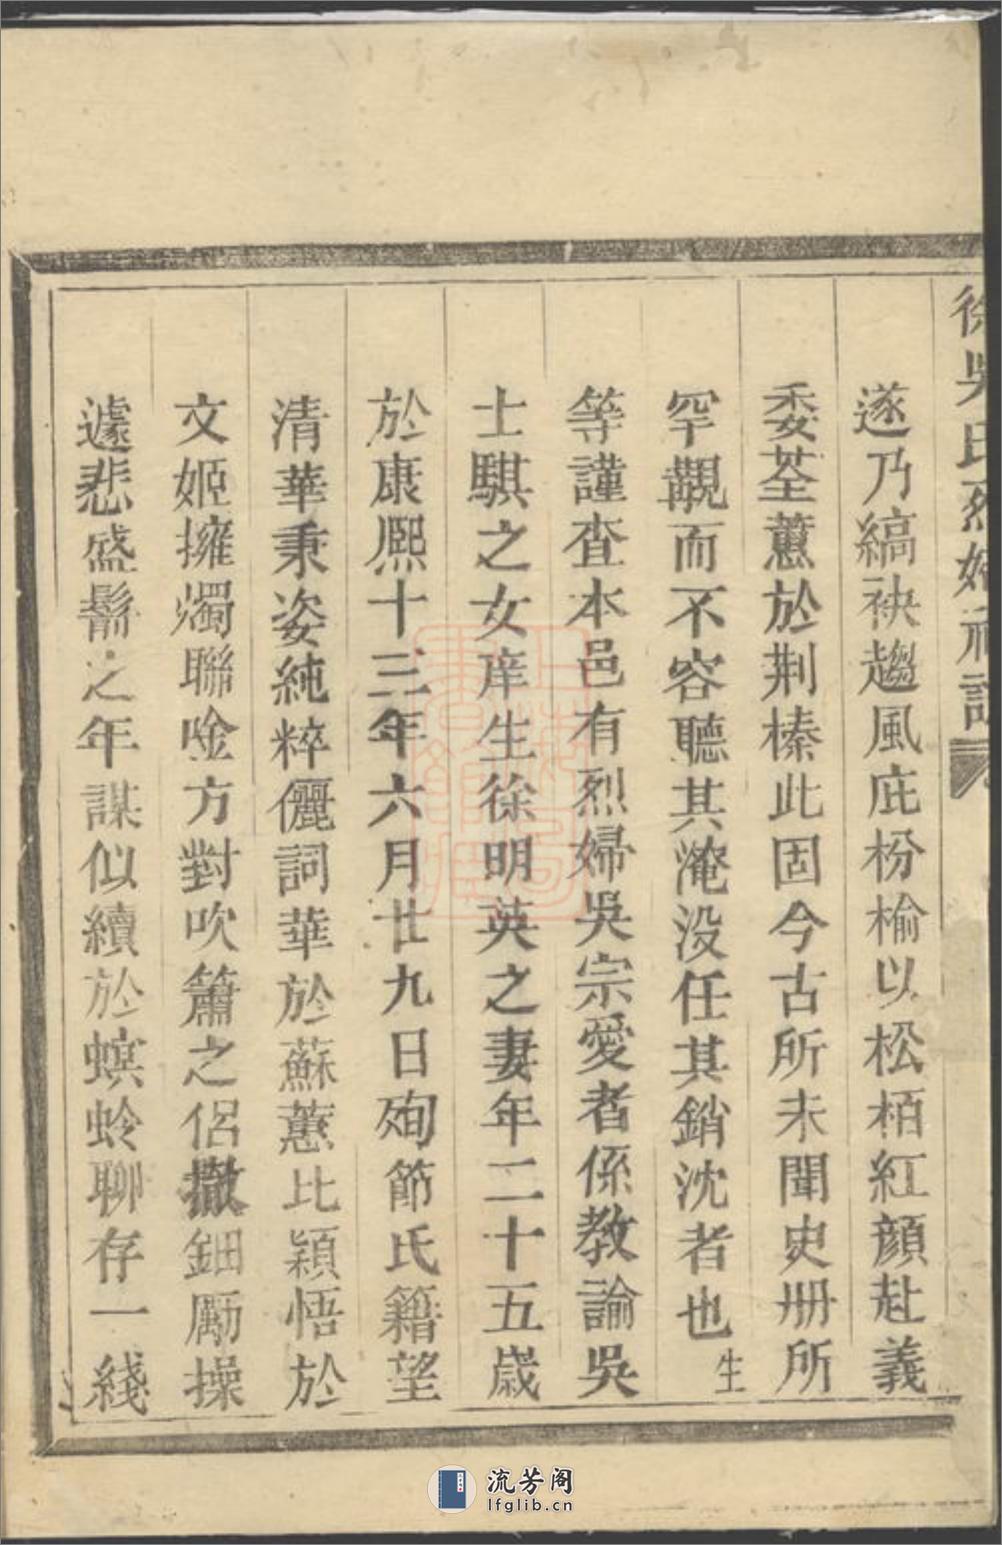 徐吳氏烈婦
遂乃縞袂趨風庇枌榆以松栢紅顏赴義
委荃蕙於荆榛此固今古所未聞史册所
罕覯而不容聽其淹没任其銷沈者也生
等謹查本邑有烈婦吳宗愛者係教諭吳
士騏之女庠生徐明英之妻年二十五歲
於康熙十三年六月廿九日殉節氏籍望
清華秉姿純粹儷詞華於蘇蕙比穎悟於
文姬擁燭聯唫方對吹簫之侣撤鈿厲操
遽悲盛鬋之年謀似續於螟蛉聊存一綫
流芳阁
lfglib.cn